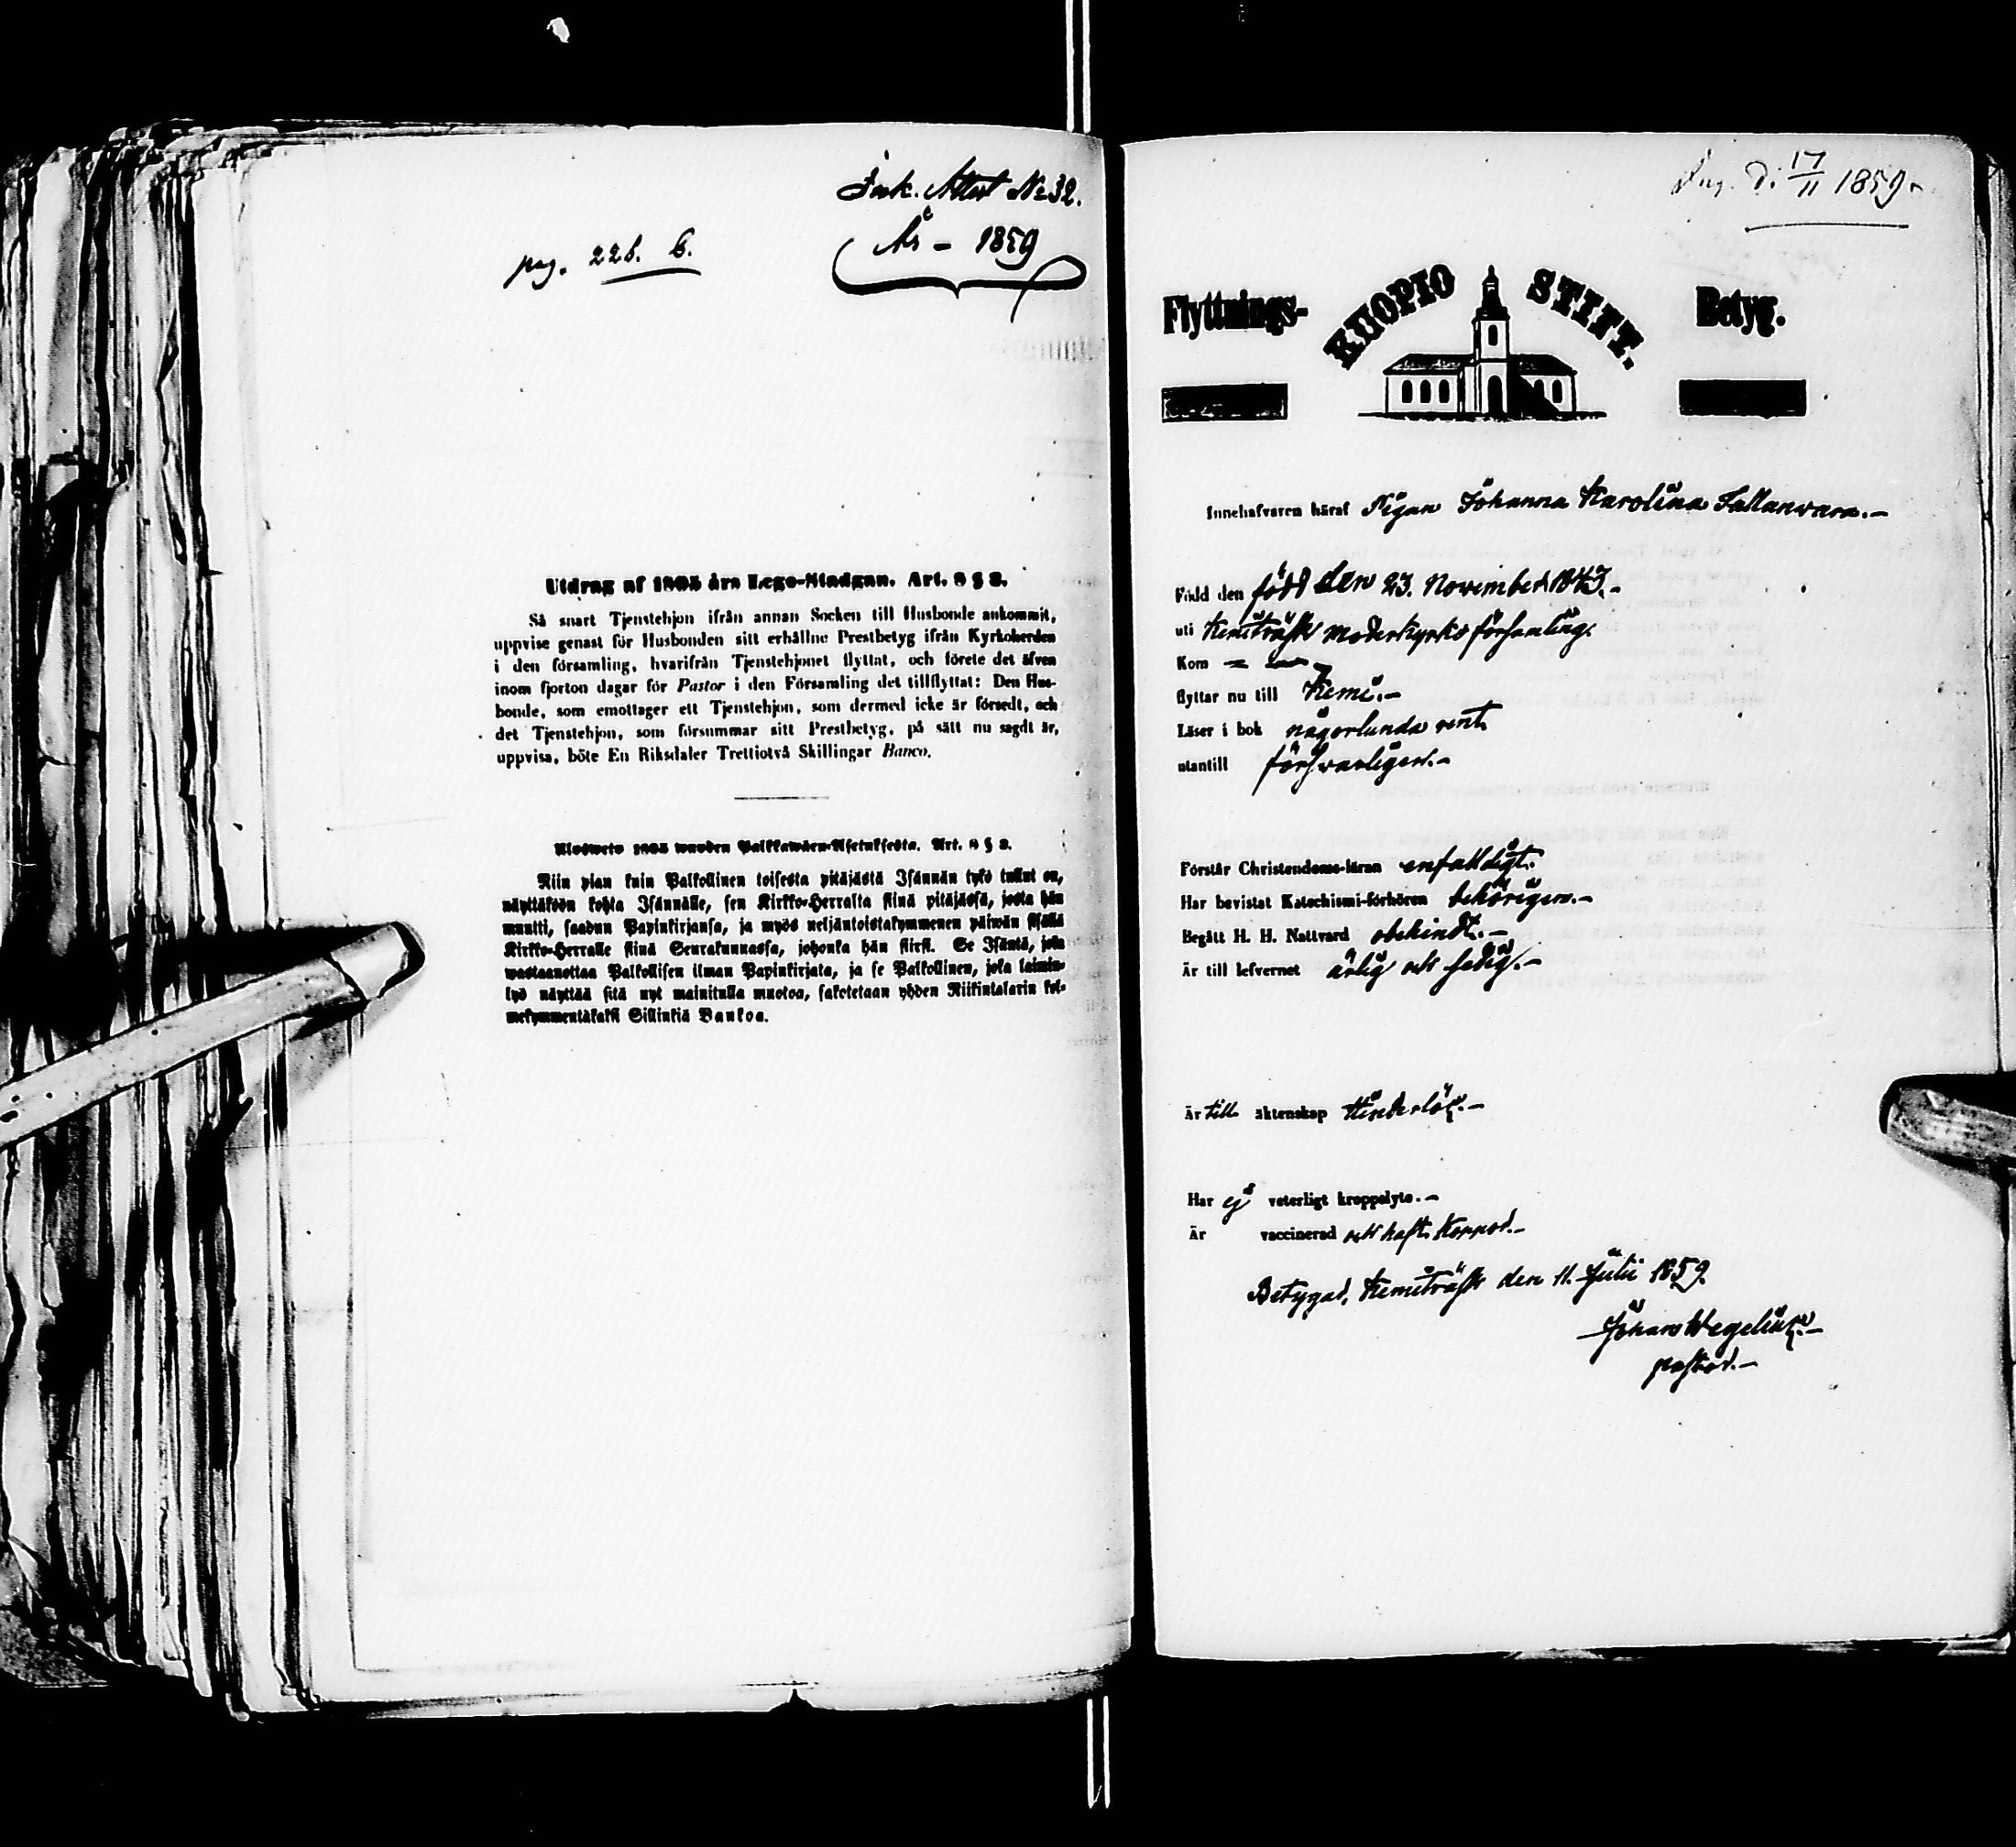 Ink. Attest No 32.
År - 1859
pag. 226. b.
Utdrag af 1805 års Lego-Stadgan. Art. 8 § 3.
Så snart Tjenstehjon ifrån annan Socken till Husbonde ankommit,
uppvise genast för Husbonden sitt erhållne Prestbetyg ifrån Kyrkoherden
i den församling, hvarifrån Tjenstehjonet flyttat, och förete det äfven
inom fjorton dagar för Pastor i den Församling det tillflyttat: Den Hus-
bonde, som emottager ett Tjenstehjon, som dermed icke är försedt, och
det Tjenstehjon, som försummar sitt Prestbetyg, på sätt nu sagdt är,
uppvisa, böte En Riksdaler Trettiotvå Skillingar Banco.
Ulosweto 1805 wuoden Palkkawäen-Asetuksesta. Art. 8 § 3.
Niin pian kuin Palkollinen toisesta pitäjästä Isännän tykö tullut on,
näyttäköön kohta Isännälle, sen Kirkko-Herralta siinä pitäjässä, josta hän
muutti, saadun Papinkirjansa, ja myös neljäntoistakymmenen päiwän sisällä
Kirkko-Herralle siinä Seurakunnassa, johonka hän siirsi. Se Isäntä, joka
wastaanottaa Palkollisen ilman Papinkirjata, ja se Palkollinen, joka laimin-
lyö näyttää sitä nyt mainitulla muotoa, sakotetaan yhden Riikintalarin kol-
mekymmentäkaksi Sillinkiä Bankoa.
d. 17/11 1859
Flyttnings- KUOPIO STIFT. Betyg.
Innehafvaren häraf Pigan Johanna Karolina Tallanvara.-
Född den född den 23. November 1843.-
uti Kemiträsk moderkyrko församling.
Kom
flyttar nu till Kemi.-
Läser i bok någorlunda rent
utantill försvarligen.-
Förstår Christendoms-läran enfaldigt.
Har bevistat Katechismi-förhören behörigen.-
Begått H. H. Nattvard obehindt.-
Är till lefvernet ärlig och fredig.-
Är till äktenskap hinderlös.-
Har ej veterligt kroppslyte.-
Är vaccinerad och haft Koppor.-
Betygad, Kemiträsk den 11. Julii 1859.
Johan Wegelius.-
pastor.-